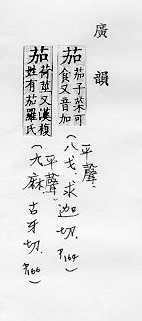 廣韻
茄 茄子菜可
食又音加
平聲、
(八戈、求迦切. P164)
茄 荷莖又漢複
姓有茄羅氏
平聲、
(九麻、古牙切. P166)